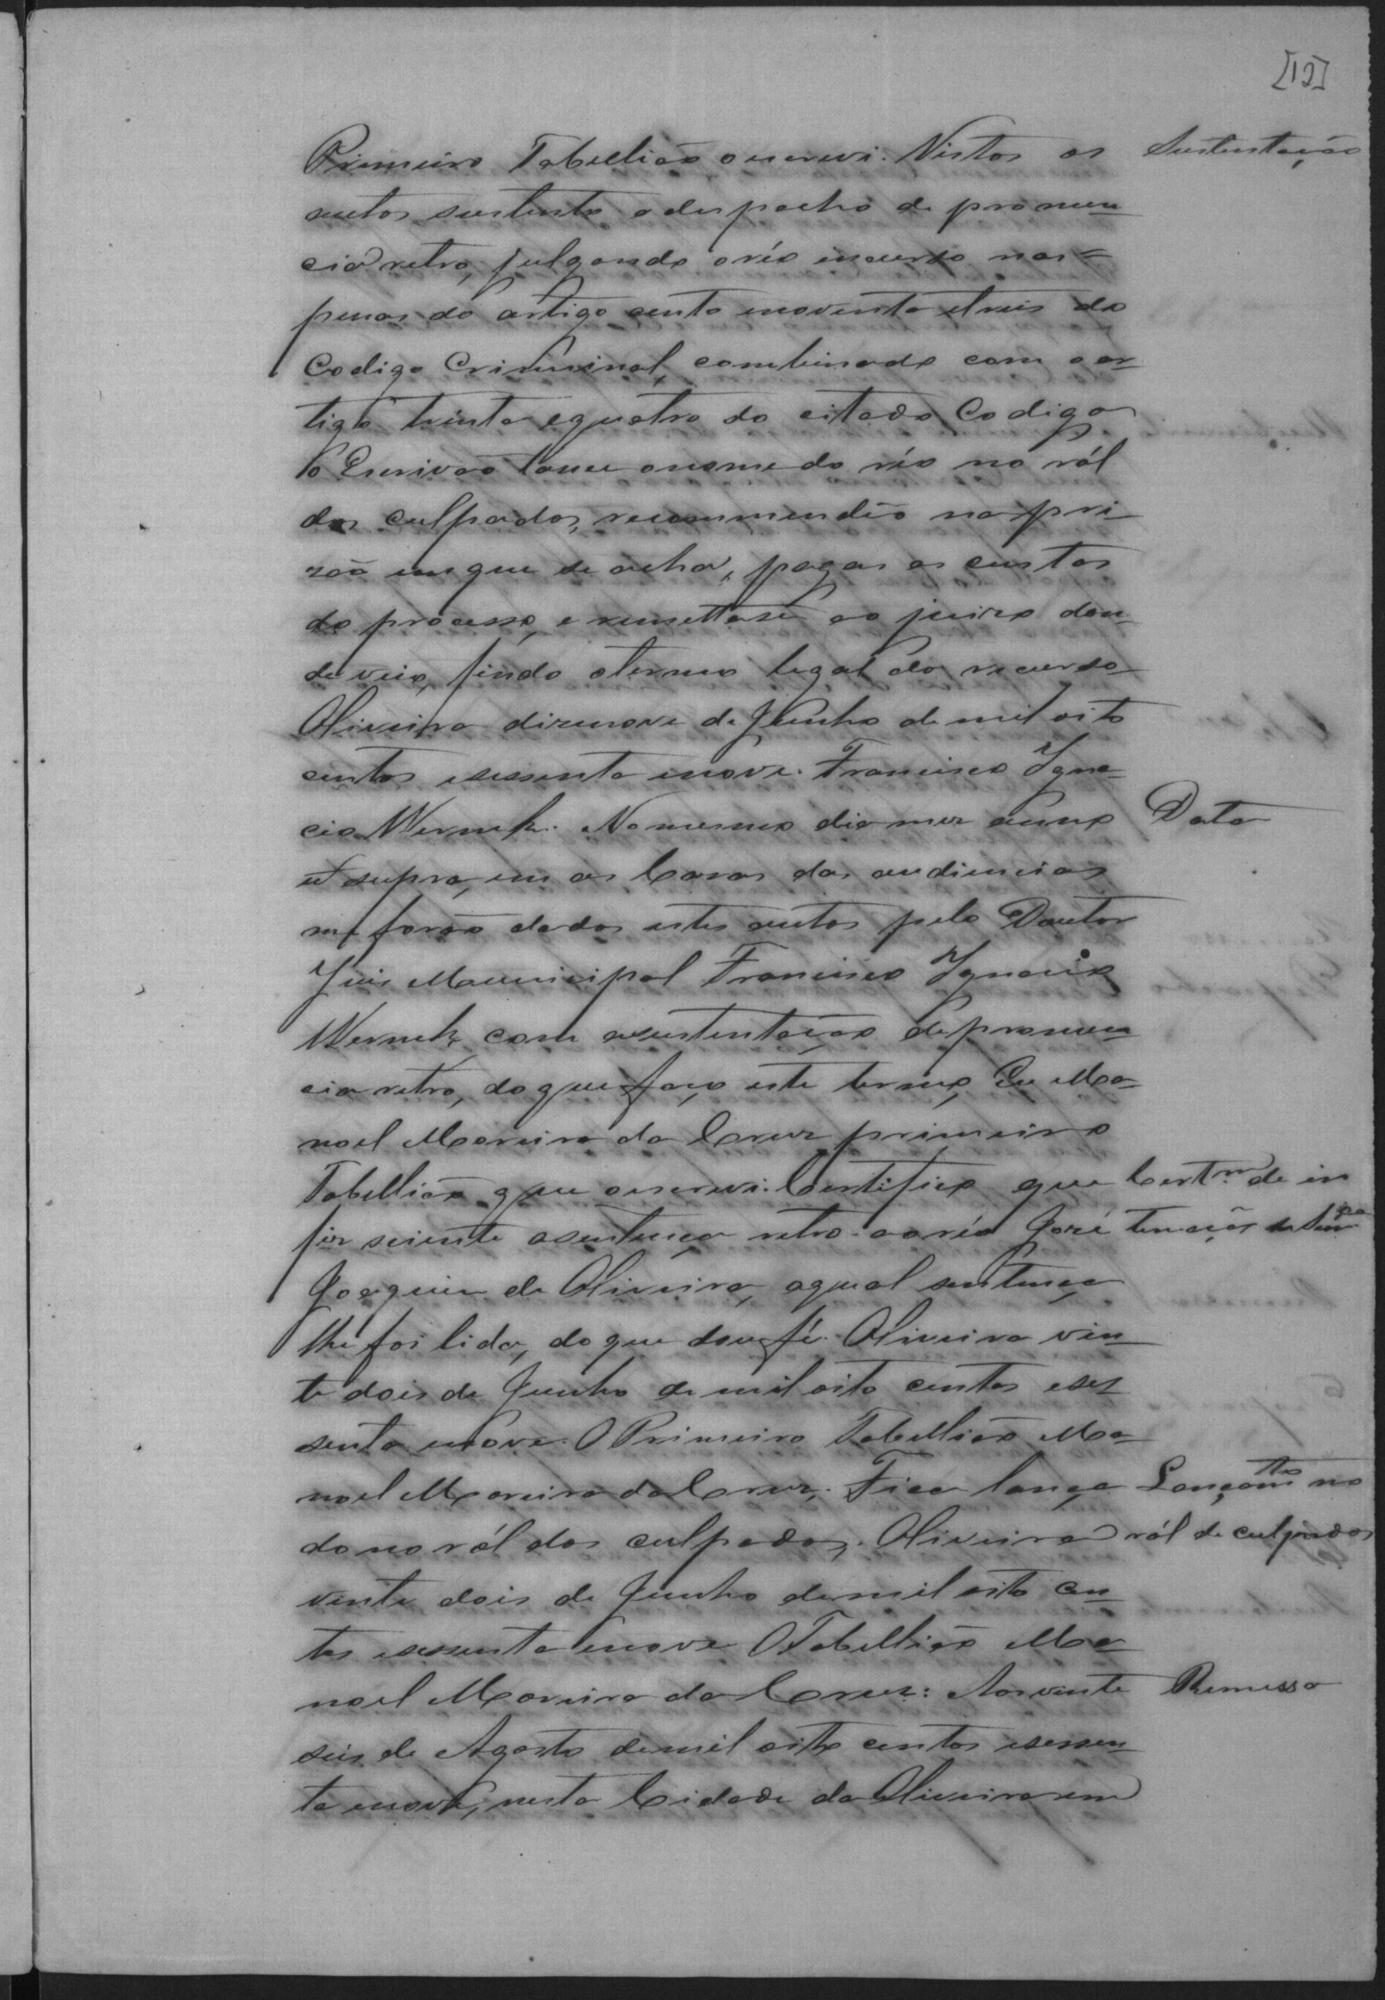 [12]
Primeiro Tabellião o escrevi. Vistos os
Sustentação
autos sustento o despacho de pronun
cia retro, julgando o réo incurso nas =
penas do artigo cento enoventa etres do
Codigo Criminal, combinado com o ar
tigo trinta equatro do citado Codigo
O Escrivão lance onome do réo no ról
dos culpados, recommendeo na pri
zão emque se acha, pagas as custas
do processo, e remettase ao juizo don
de veio, findo otermo legal do recurso
Oliveira dizenove de Junho de mil oito
centos esessenta enove. Francisco Igna
cio Wernek. Nomesmo dia mez anno
Data
ut supra, em as Casas das audiencias
me forão dados estes autos pelo Doutor
Juis Municipal Francisco Ignacio
Wernek com asustentação depronun
cia retro, doque faço este termo, Eu Ma=
noel Moreira da Cruz primeiro
Tabellião que oescrevi. Certifico que
Cert.m de in
fiz sciente asentença retro ao réo José
temação da Senª
Joaquim de Oliveira, aqual sentença
lhe foi lida, do que dou fé. Oliveira vin
te dois de Junho de mil oito centos eses
senta enove. O Primeiro Tabellião Ma=
noel Moreira da Cruz. Fica lança
Lançamto no
do no ról dos culpados. Oliveira
ról de culpados
vente dois de Junho demil oito cen
tos esessenta enove O Tabellião Ma
noel Moreira da Cruz: Aos vente
Remessa
seis de Agosto demil oito centos esessen
ta enove, nesta Cidade da Oliveira em